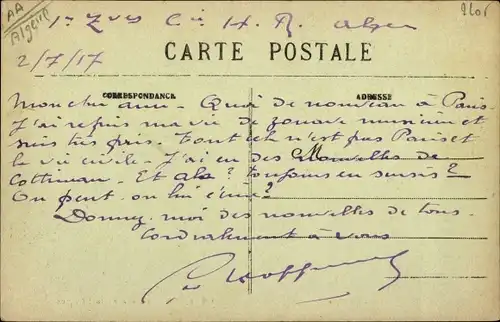 AA
Algérie
1r Zves Cie H. R. Alger
2/7/17
CARTE POSTALE
CORRESPONDANCE
ADRESSE
Mon cher ami - Quoi de nouveau à Paris
J'ai repris ma vie de zouave musicien et
suis très pris. Tout cela n'est pas Paris et
la vie civile - J'ai eu des Nouvelles de
Cottineau - Et ? toujours en sursis?
On peut-on lui écrire?
Donnez-moi des nouvelles de tous.
Cordialement à vous